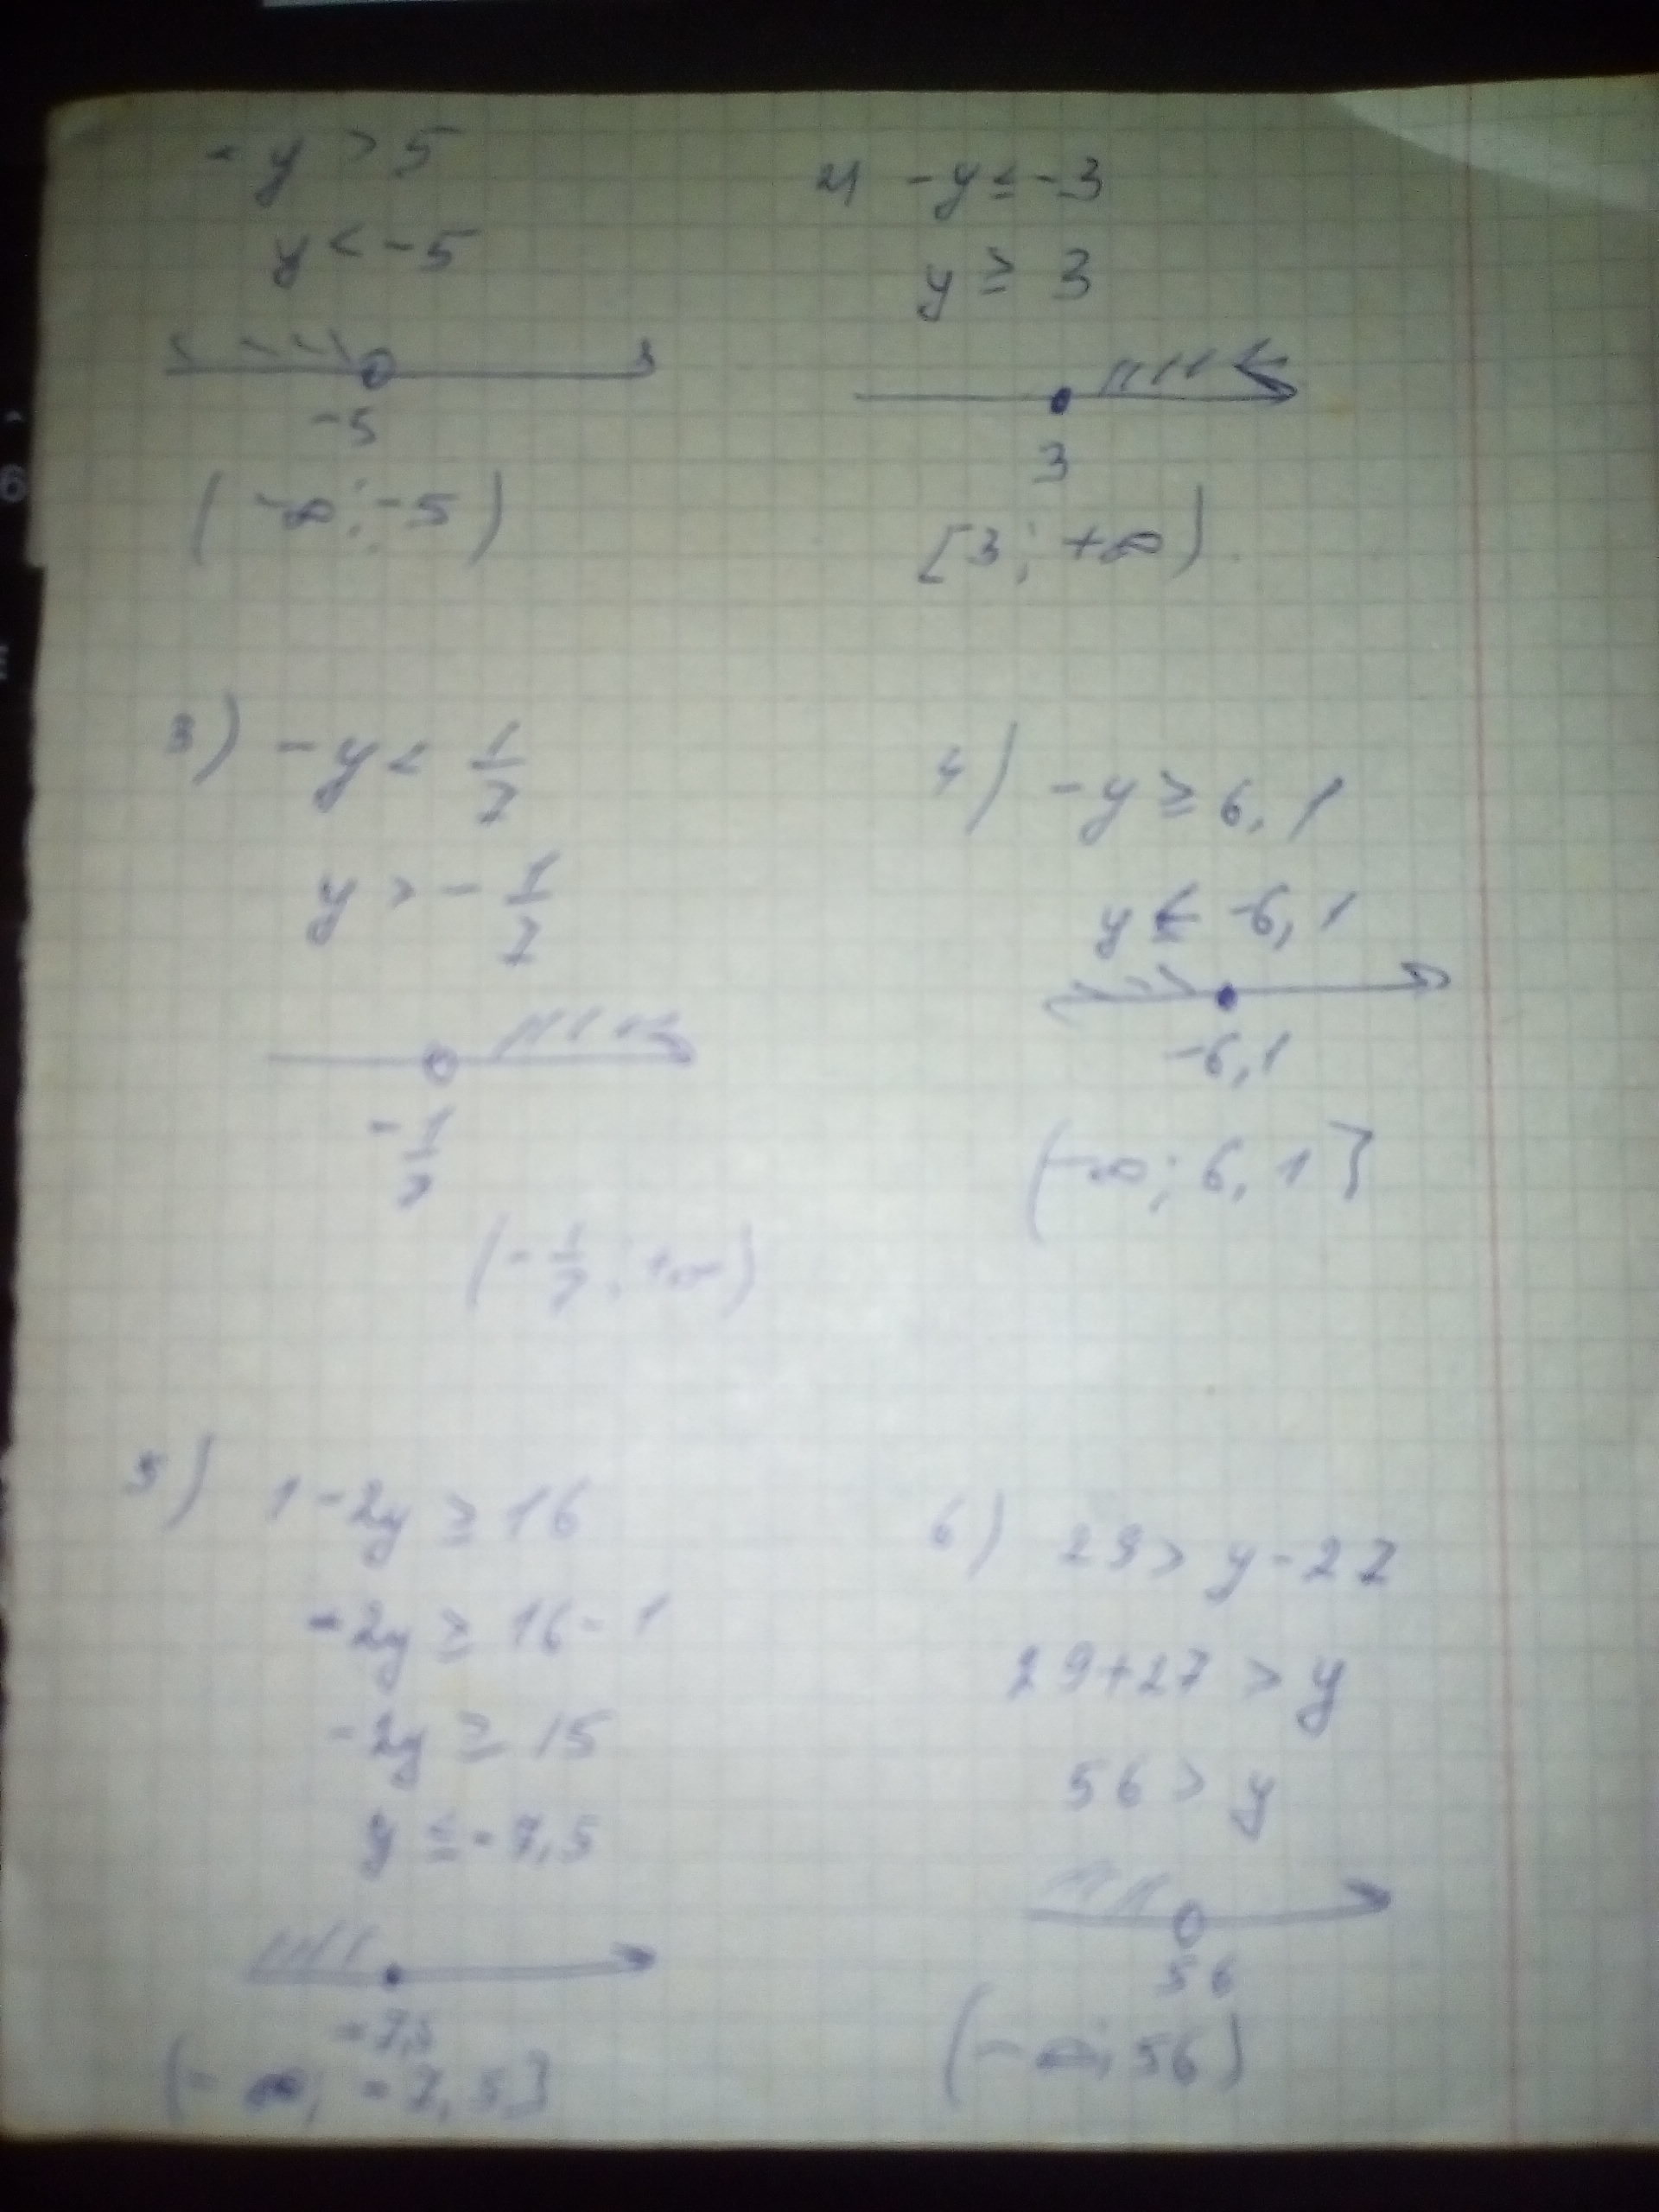 -y > 5
y < -5
-5
(-∞; -5)
2) -y ≤ -3
y ≥ 3
3
[3; +∞)
3) -y < 1/7
y > -1/7
-1/7
(-1/7; +∞)
4) -y ≥ 6,1
y ≤ -6,1
-6,1
(-∞; 6,1]
5) 1-2y ≥ 16
-2y ≥ 16-1
-2y ≥ 15
y ≤ -7,5
-7,5
(-∞; -7,5]
6) 29 > y-27
29+27 > y
56 > y
56
(-∞; 56)